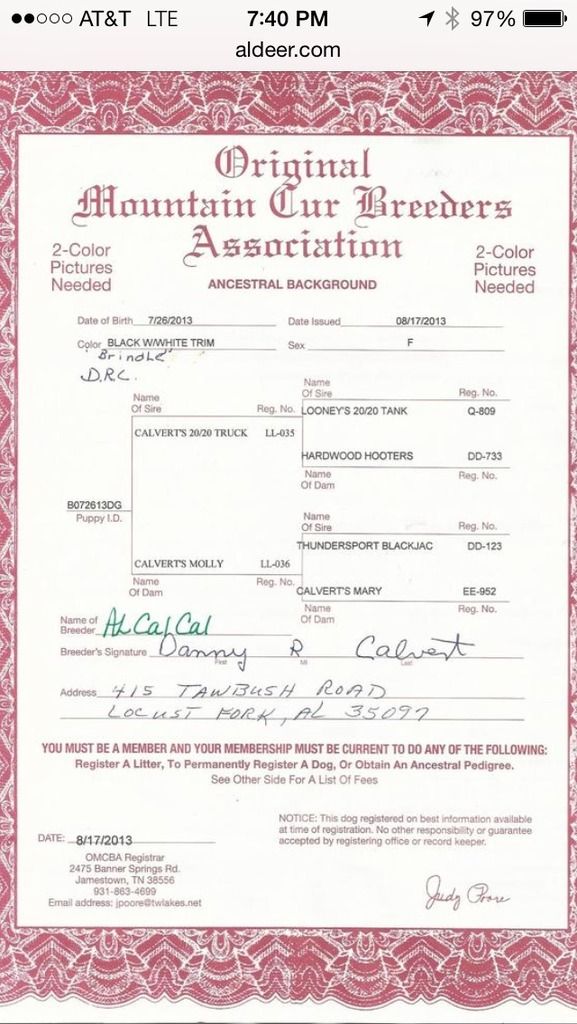 AT&T LTE 7:40 PM 97%
aldeer.com
Original
Mountain Cur Breeders
Association
2-Color
Pictures
Needed
2-Color
Pictures
Needed
ANCESTRAL BACKGROUND
Date of Birth 7/26/2013 Date Issued 08/17/2013
Color BLACK W/WHITE TRIM Sex F
"Brindle"
D.R.C.
Name
Of Sire Reg. No.
CALVERT'S 20/20 TRUCK LL-035
Name
Of Sire Reg. No.
LOONEY'S 20/20 TANK Q-809
HARDWOOD HOOTERS DD-733
Name
Of Dam Reg. No.
B072613DG
Puppy I.D.
Name
Of Sire Reg. No.
THUNDERSPORT BLACKJAC DD-123
CALVERT'S MOLLY LL-036
Name
Of Dam Reg. No.
CALVERT'S MARY EE-952
Name
Of Dam Reg. No.
Name of
Breeder AL Cal Cal
Breeder's Signature Danny R Calvert
First MI Last
Address 415 TAWBUSH ROAD
LOCUST FORK, AL 35097
YOU MUST BE A MEMBER AND YOUR MEMBERSHIP MUST BE CURRENT TO DO ANY OF THE FOLLOWING:
Register A Litter, To Permanently Register A Dog, Or Obtain An Ancestral Pedigree.
See Other Side For A List Of Fees
NOTICE: This dog registered on best information available
at time of registration. No other responsibility or guarantee
accepted by registering office or record keeper.
DATE: 8/17/2013
OMCBA Registrar
2475 Banner Springs Rd.
Jamestown, TN 38556
931-863-4699
Email address: jpoore@twlakes.net
Judy Poore